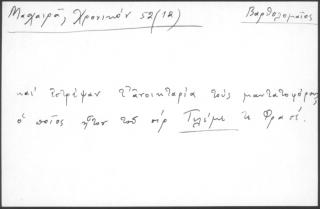 Μαχαιρᾶ, Χρονικόν 52 (12)
Βαρθολομαῖος
καί ἔστρεψαν τ' ἀνοικτάρια τούς μαντατοφόρους
ὁ ποῖος ἦτον τοῦ σίρ Τζεμὲ τε Φρασέ.